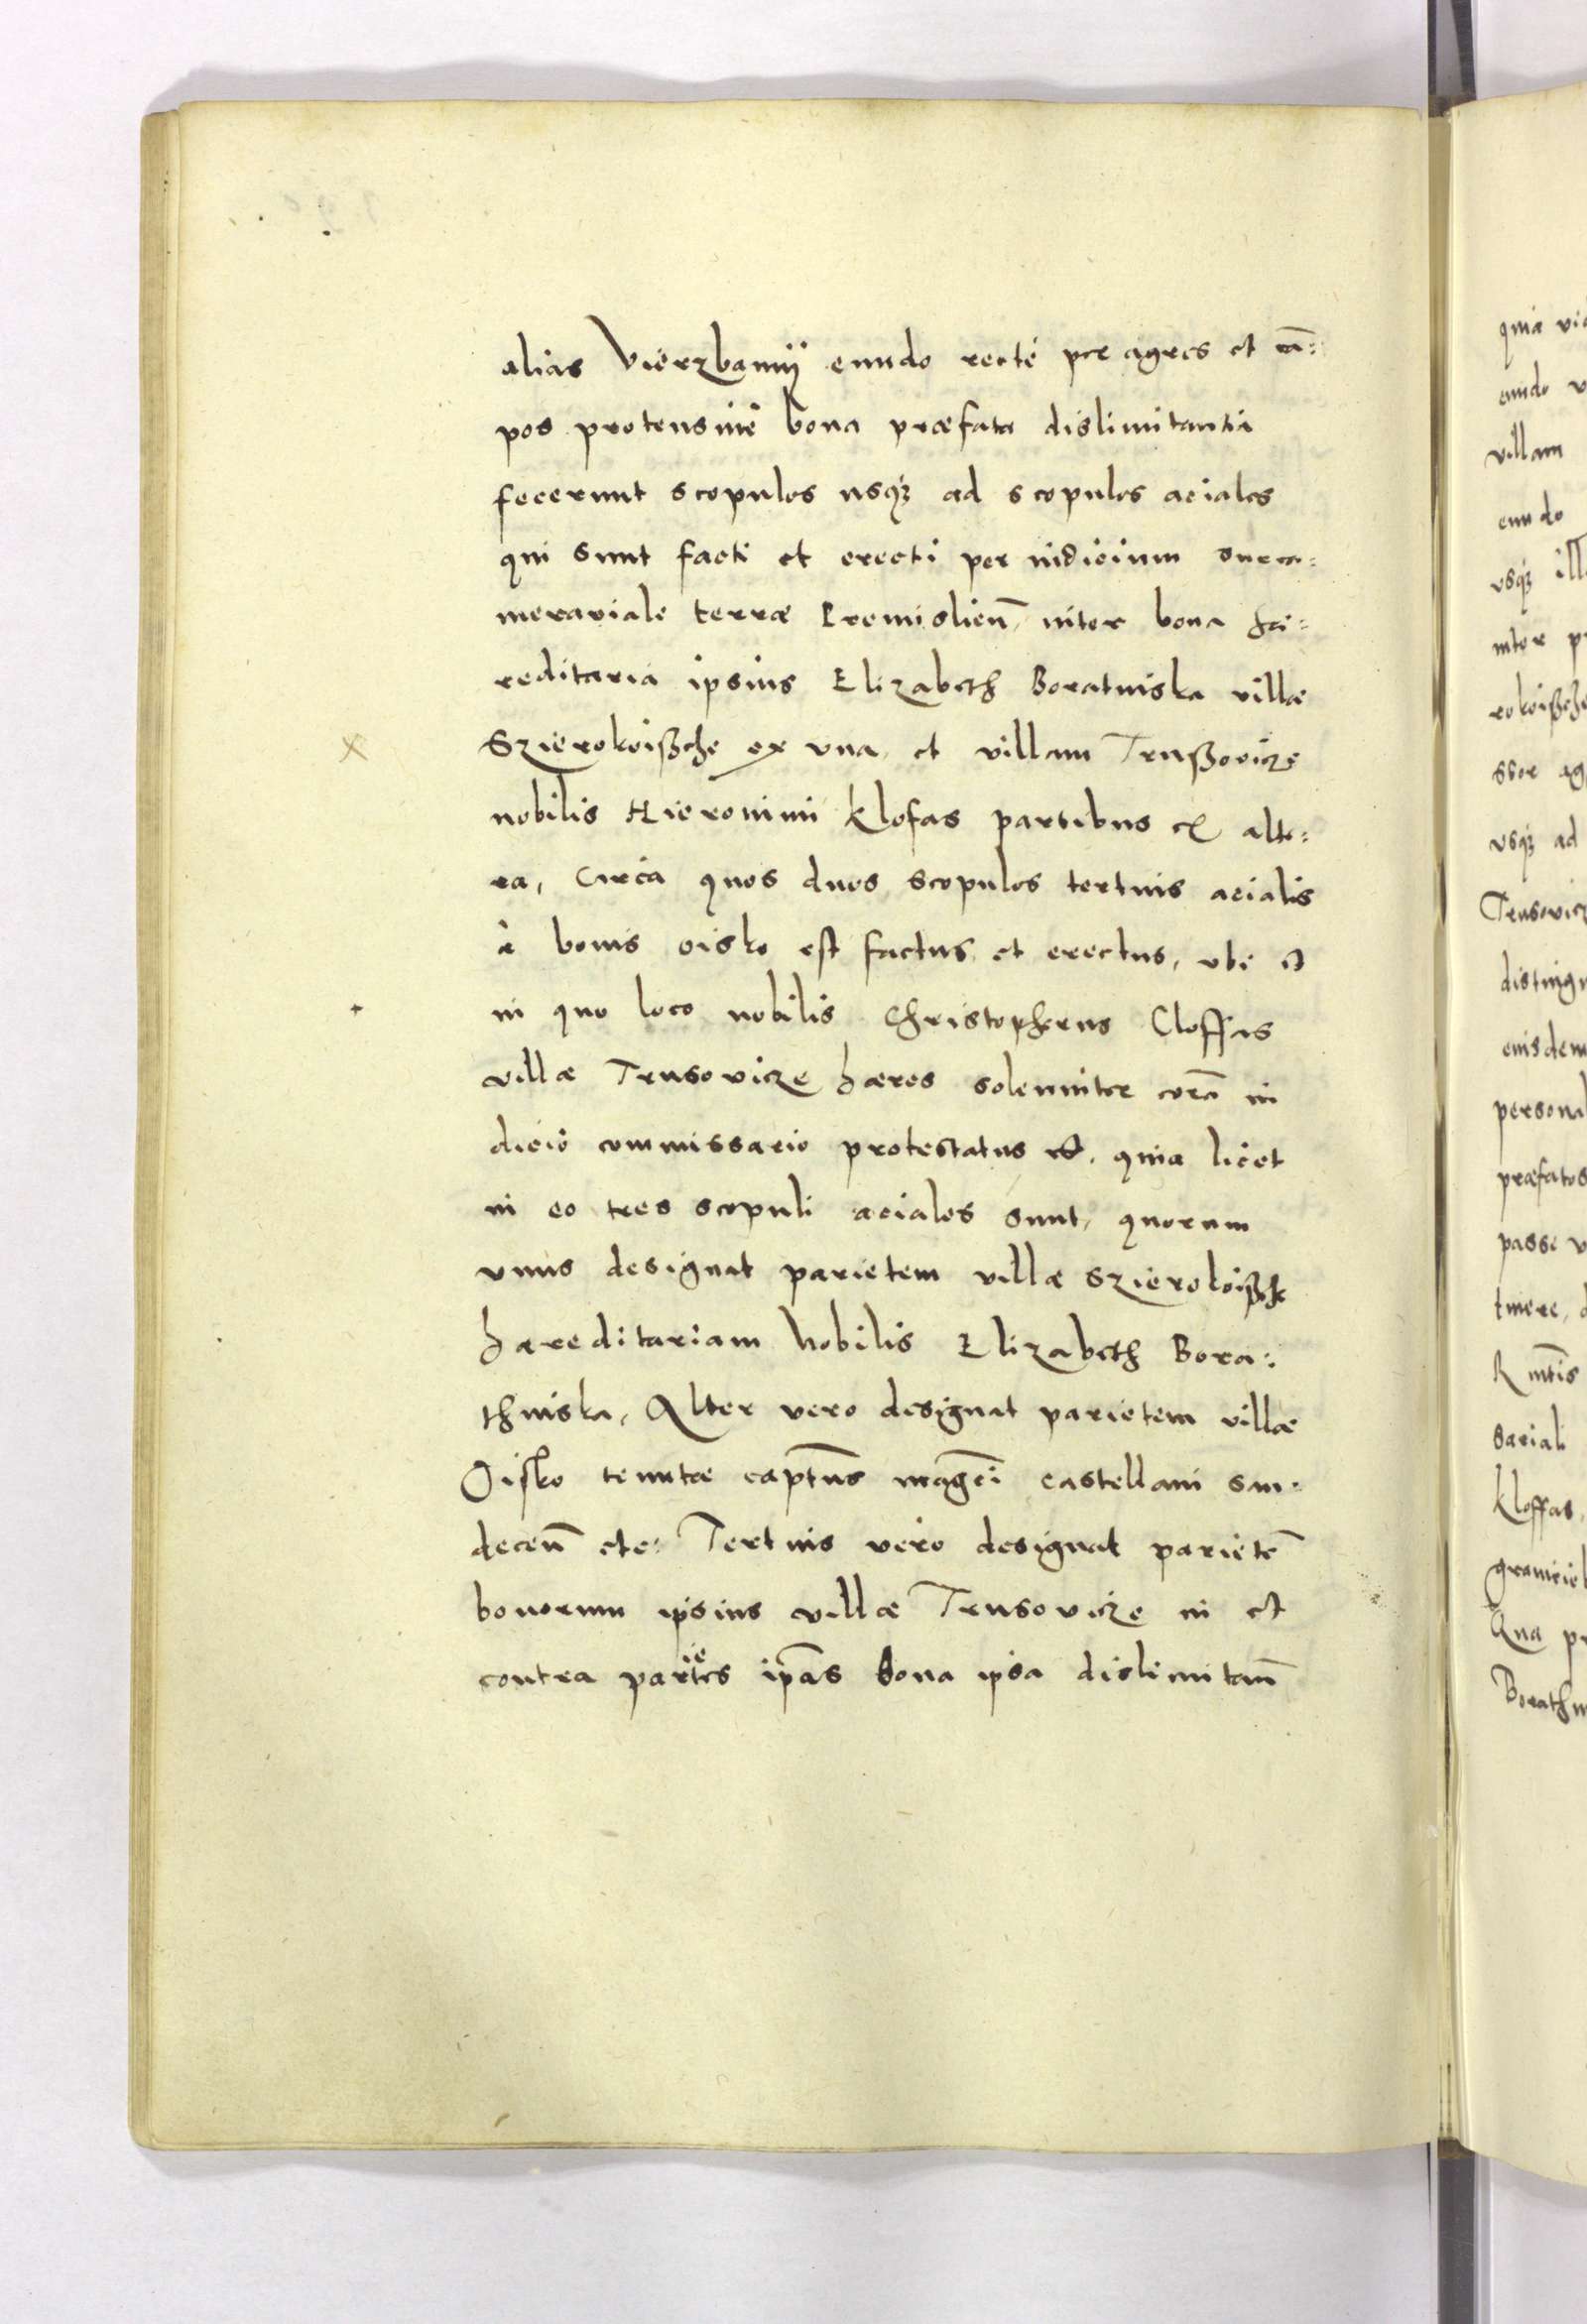 alias Vierzbamij eundo recte per agros et cā:
pos protensive bona præfata dislimitantia
fecerunt scopulos usq₃ ad scopulos aciales
qui sunt facti et erecti per iudicium succa:
merariale terræ Premislieñ, inter bona hæ:
reditaria ipsius Elizabeth Boratinska villæ
Szierokoißche ex una, et villam Trußovicze
nobilis Hieronimi Klofas partibus ex alte:
ra, Circa quos duos scopulos tertius acialis
à bonis oisko est factus et erectus, ubi et
in quo loco nobilis Christopherus Cloffas
villæ Trusovicze hæres solenniter corā iu
dicio commissario protestatus est, quia licet
in eo tres scopuli aciales sunt, quorum
unus designat parietem villæ Szierokoißche
hæreditariam Nobilis Elizabeth Bora:
thinska, Alter vero designat parietem villæ
Oisko tenutæ captūs magci castellani san:
deceñ etc: Tertius vero designat parietē
bonorum ipsius villæ Trusovicze in et
contra parietes ipās bona ipsa dislimitañ
quia
eundo
villam
eundo
usq₃
inter
rokoißche
usq₃ ad
Trusovicz
eiusdem
præfatos
passe
Kloffas,
Qua